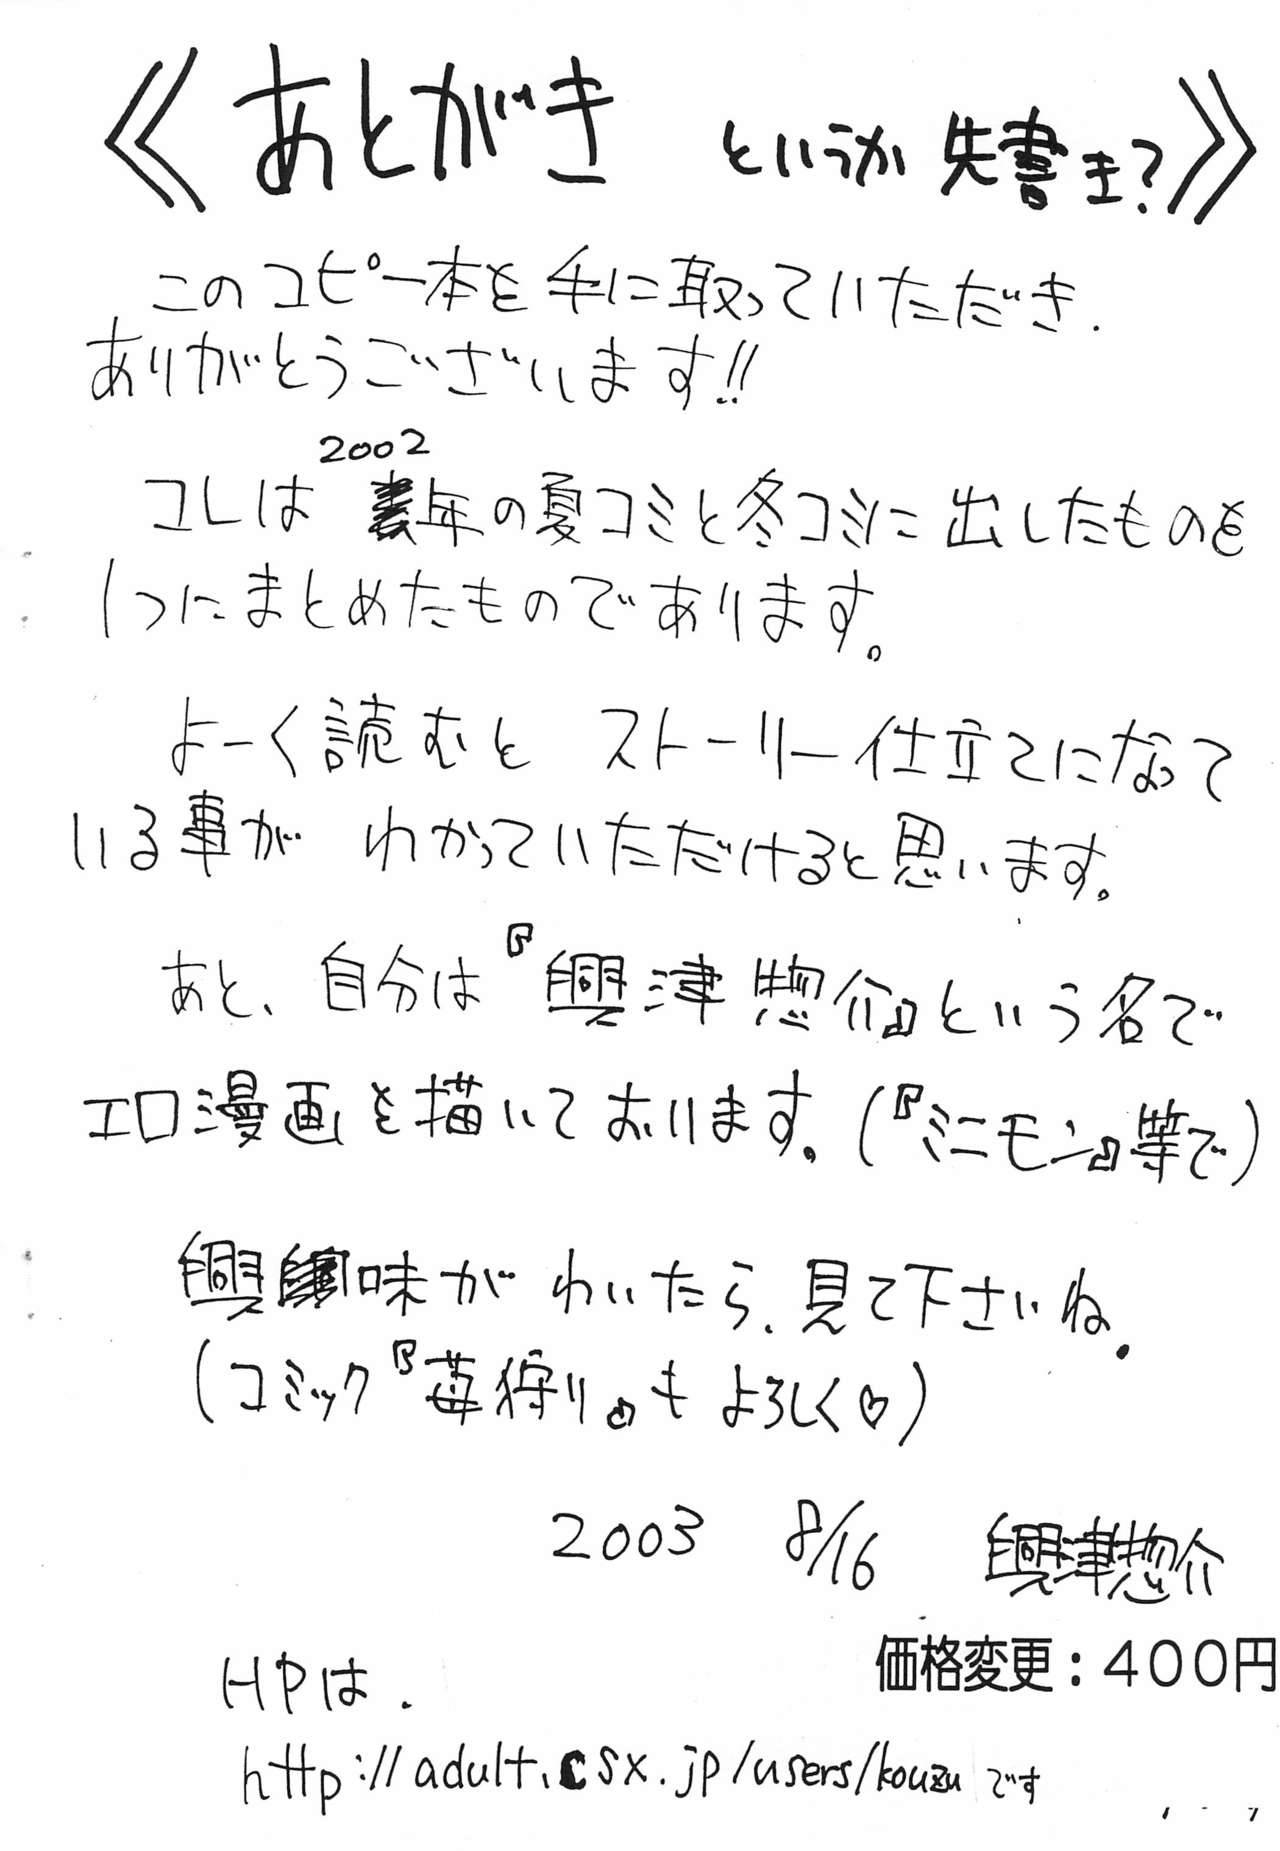 《あとがき というか 先書き?》
このコピー本を手に取っていただき.
ありがとうございます!!
2002
コレは 年の夏コミと冬コミに出したものを
1つにまとめたものであります。
よーく読むと ストーリー仕立てになって
いる事が わかっていただけると思います。
あと、自分は『興津惣介』という名で
エロ漫画を描いております。(『ミニモン』等で)
興味が わいたら、見て下さいね.
(コミック『苺狩り』も よろしく♡)
2003 8/16 興津惣介
価格変更:400円
HPは.
http://adult.csx.jp/users/kouzu です